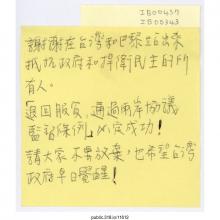 IB00437
IB00343
謝謝在台灣和巴黎站出來
抵抗政府和捍衛民主的所
有人。
退回服貿，通過兩岸協議
監督條例，必定成功！
請大家不要放棄，也希望台灣
政府早日覺醒！
public.318.io/11512